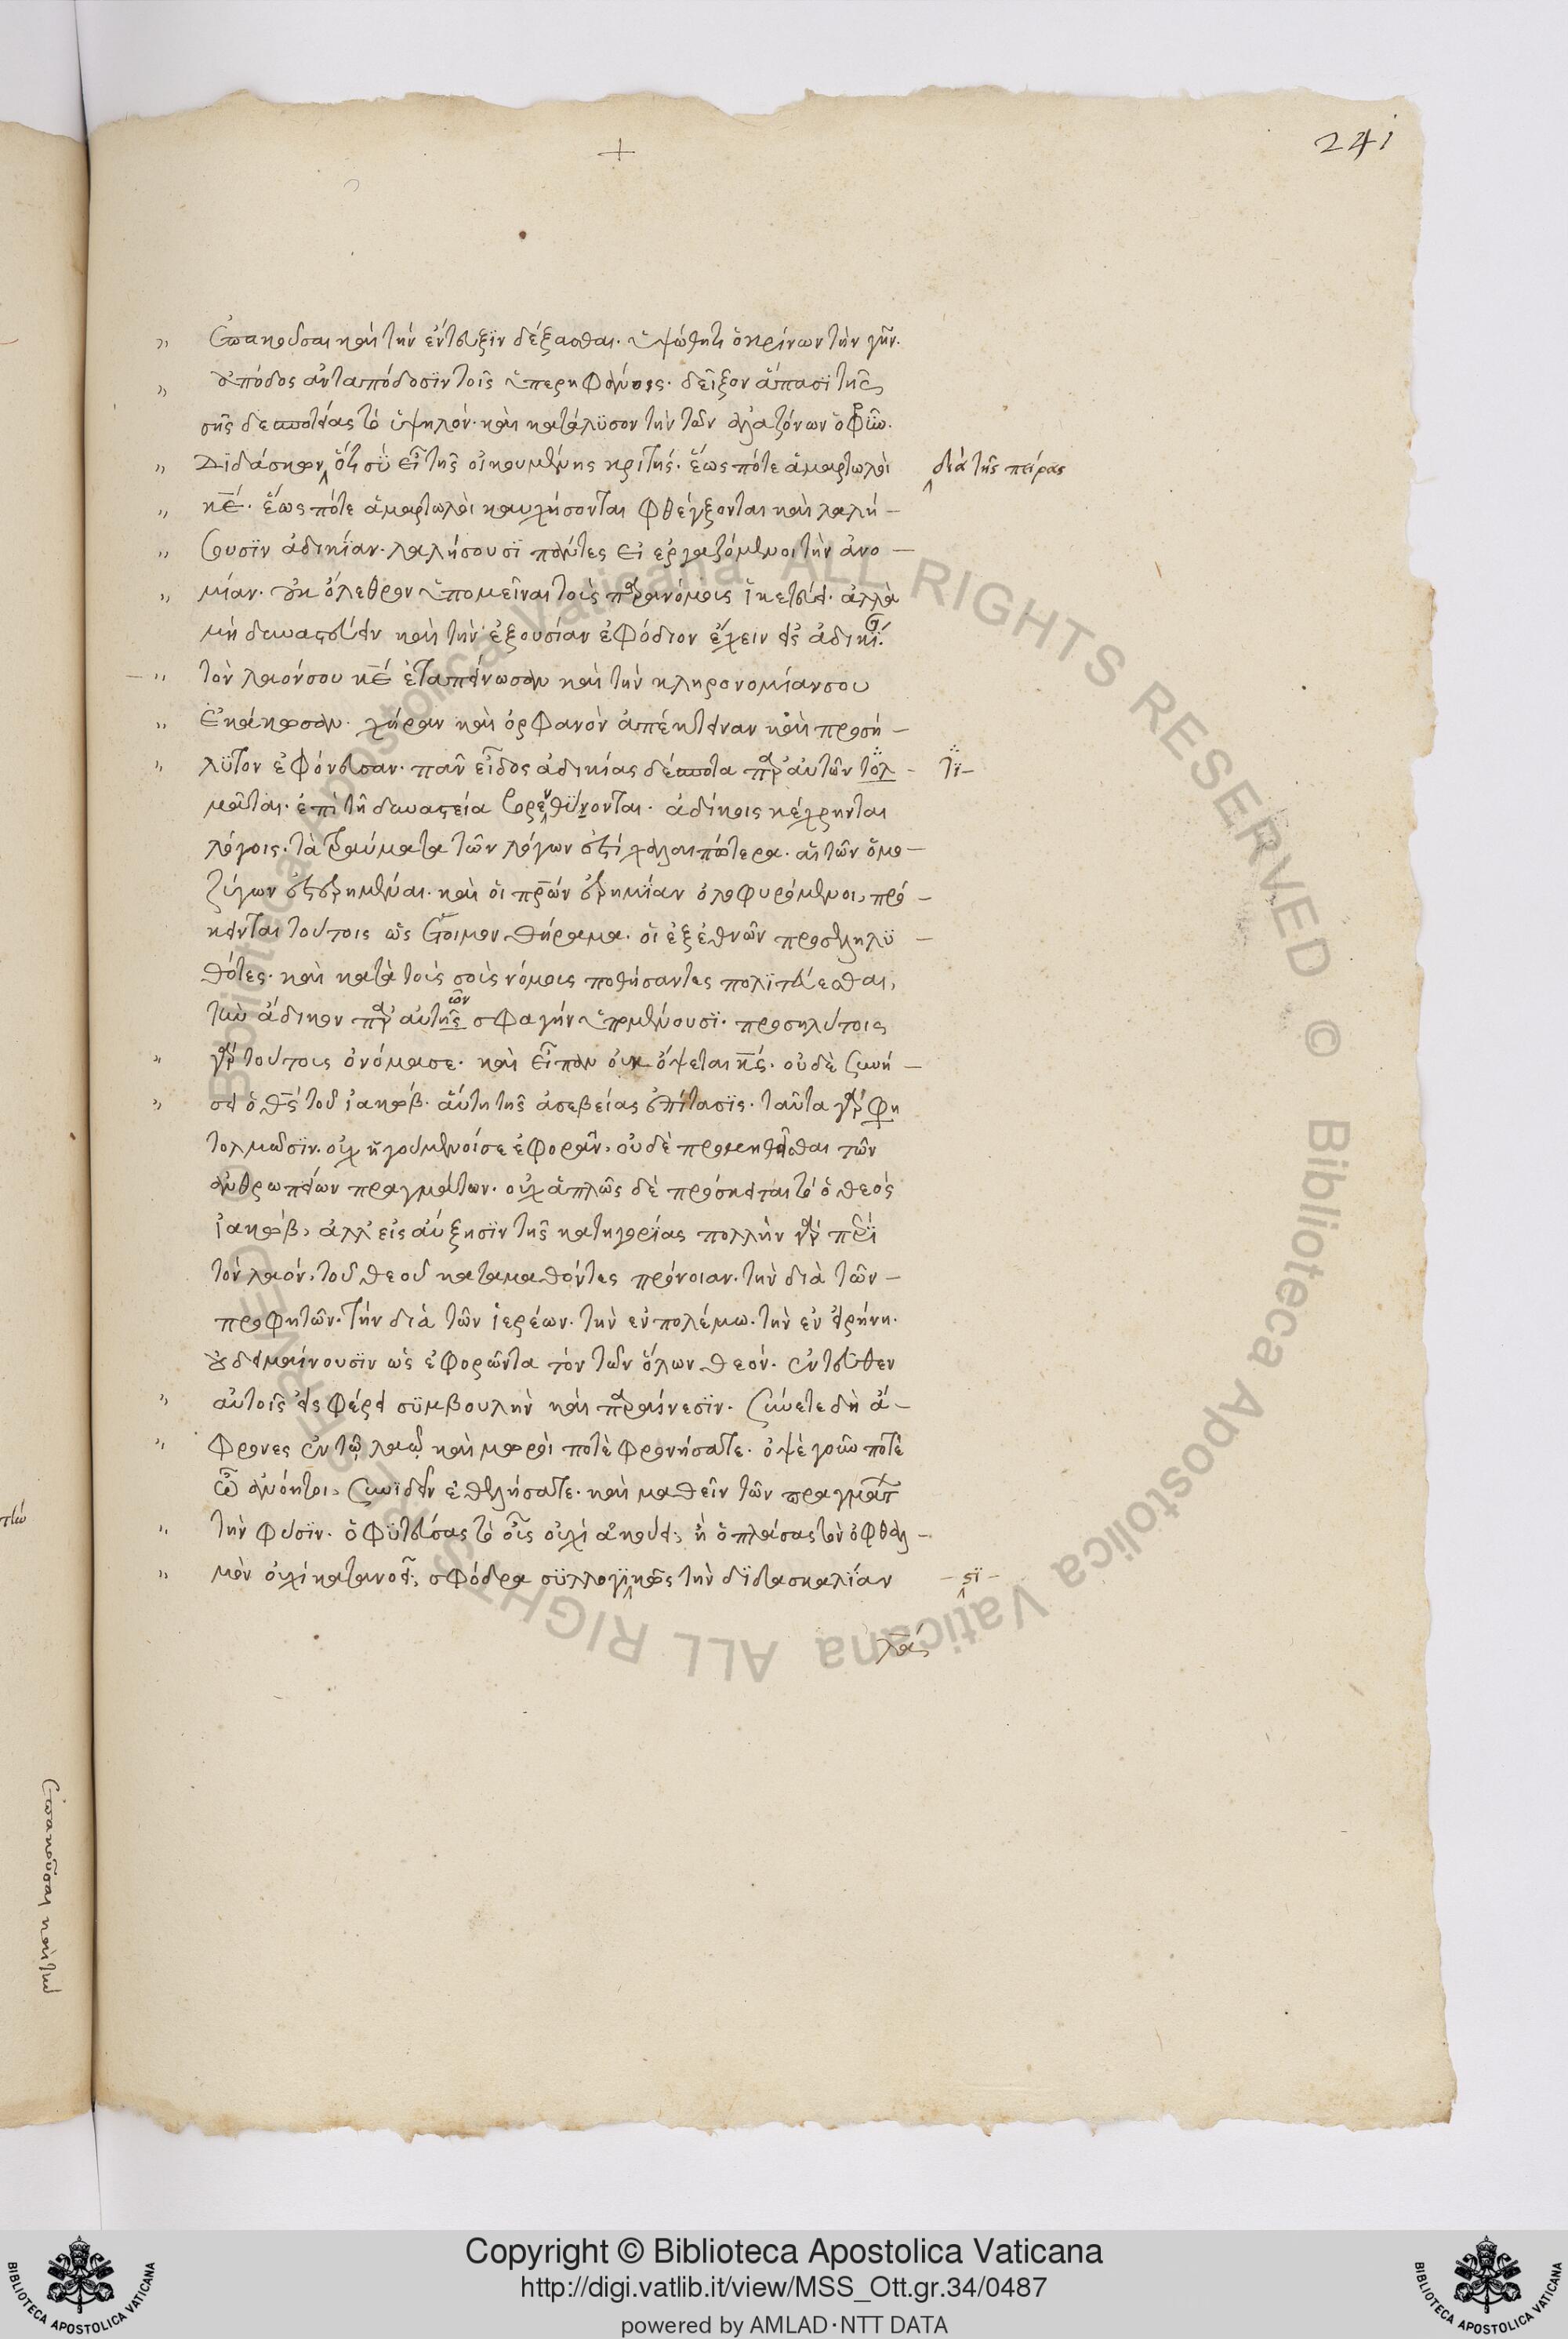 +
241
ἐπακοῦσαι καὶ τὴν ἔντευξϊν δέξασθαι. ὑψώθητι ὁ κρίνων τὴν γῆν.
ἀπόδος ἀνταπόδοσϊν τοῖς ὑπερηφάνοις. δεῖξον ἅπασϊ τῆς
σῆς δεσποτείας τὸ ὑψηλόν. καὶ κατάλϋσον τὴν τῶν ἀλαζόνων ὀφρῦν.
Δϊδάσκων ὅτι σὺ εἶ τῆς οἰκουμένης κριτής. ἕως πότε ἁμαρτωλοὶ
διὰ τῆς πείρας
κ̅ε̅. ἕως πότε ἁμαρτωλοὶ καυχήσονται φθέγξονται καὶ λαλή -
σουσϊν ἀδικΐαν. λαλήσουσϊ πάντες οἱ ἐργαζόμενοι τὴν ἀνο -
μίαν. οὐκ ὄλεθρον ὑπομεῖναι τοῖς παρανόμοις ἱκετεύει. ἀλλὰ
μὴ δυναστεύειν καὶ τὴν ἐξουσίαν ἐφόδιον ἔχειν εἰς ἀδικΐας
τὸν λαόν σου κ̅ε̅ ἐταπείνωσαν καὶ τὴν κληρονομίαν σου
ἐκάκωσαν. χήραν καὶ ὀρφανὸν ἀπέκτειναν καὶ προσή -
λϋτον ἐφόνευσαν. πᾶν εἶδος ἀδικίας δέσποτα παρ' αὐτῶν τολ -
τϊ -
μᾶται. ἐπὶ τῆ δυναστεία βρενθΰονται. ἀδίκοις κέχρηνται
λόγοις. τὰ τραύματα τῶν λόγων ἐστὶ χαλεπώτερα. αἱ τῶν ὁμο -
ζύγων ἐστερημέναι. καὶ οἱ πατέρων ἐρημΐαν ὀλοφυρόμενοι, πρό -
κεινται τούτοις ὡς ἕτοιμον θήραμα. οἱ ἐξ ἐθνῶν προσεληλϋ -
θότες. καὶ κατὰ τοὺς σοὺς νόμους ποθήσαντες πολϊτεύεσθαι,
τὴν ἄδικον παρ' αὐτῆς ῶν σφαγὴν ὑπομένουσϊ. προσηλύτους
γὰρ τούτους ὀνόμασε. καὶ εἶπον οὐκ ὄψεται κ̅ς̅. οὐδὲ συνή -
σει ὁ θ̅ς̅ τοῦ ἰακώβ. αὕτη τῆς ἀσεβείας ἐπίτασϊς. ταῦτα γάρ φη
τολμῶσϊν. οὐχ ἡγούμενοί σε ἐφορᾶν, οὐδὲ προμηθεῖσθαι τῶν
ἀνθρωπείων πραγμάτων. οὐχ ἁπλῶς δὲ πρόσκειται τὸ ὁ θεὸς
ἰακώβ, ἀλλ' εἰς αὔξησϊν τῆς κατηγορίας πολλὴν γὰρ περὶ
τὸν λαόν, τοῦ θεοῦ καταμαθόντες πρόνοιαν. τὴν διὰ τῶν -
προφητῶν. τὴν διὰ τῶν ἱερέων. τὴν ἐν πολέμω. τὴν ἐν εἰρήνη.
βδειμαίνουσϊν ὡς ἐφορῶντα τὸν τῶν ὅλων θεόν. ἐντεῦθεν
αὐτοῖς εἰσφέρει σϋμβουλὴν καὶ παραίνεσϊν. σύνετε δὴ ἄ -
φρονες ἐν τῷ λαῷ καὶ μωροὶ ποτὲ φρονήσατε. ὀψὲ γοῦν ποτὲ
ὦ ἀνόητοι, συνϊδεῖν ἐθελήσατε. καὶ μαθεῖν τῶν πραγμάτ
τὴν φύσϊν. ὁ φϋτεύσας τὸ οὖς οὐχὶ ἀκούει; ἢ ὁ πλάσας τὸν ὀφθαλ -
μὸν οὐχὶ κατανοεῖ; σφόδρα σϋλλογϊκῶς τὴν δϊδασκαλΐαν
- σϊ -
ἐπακοῦσαι καὶ τὴν